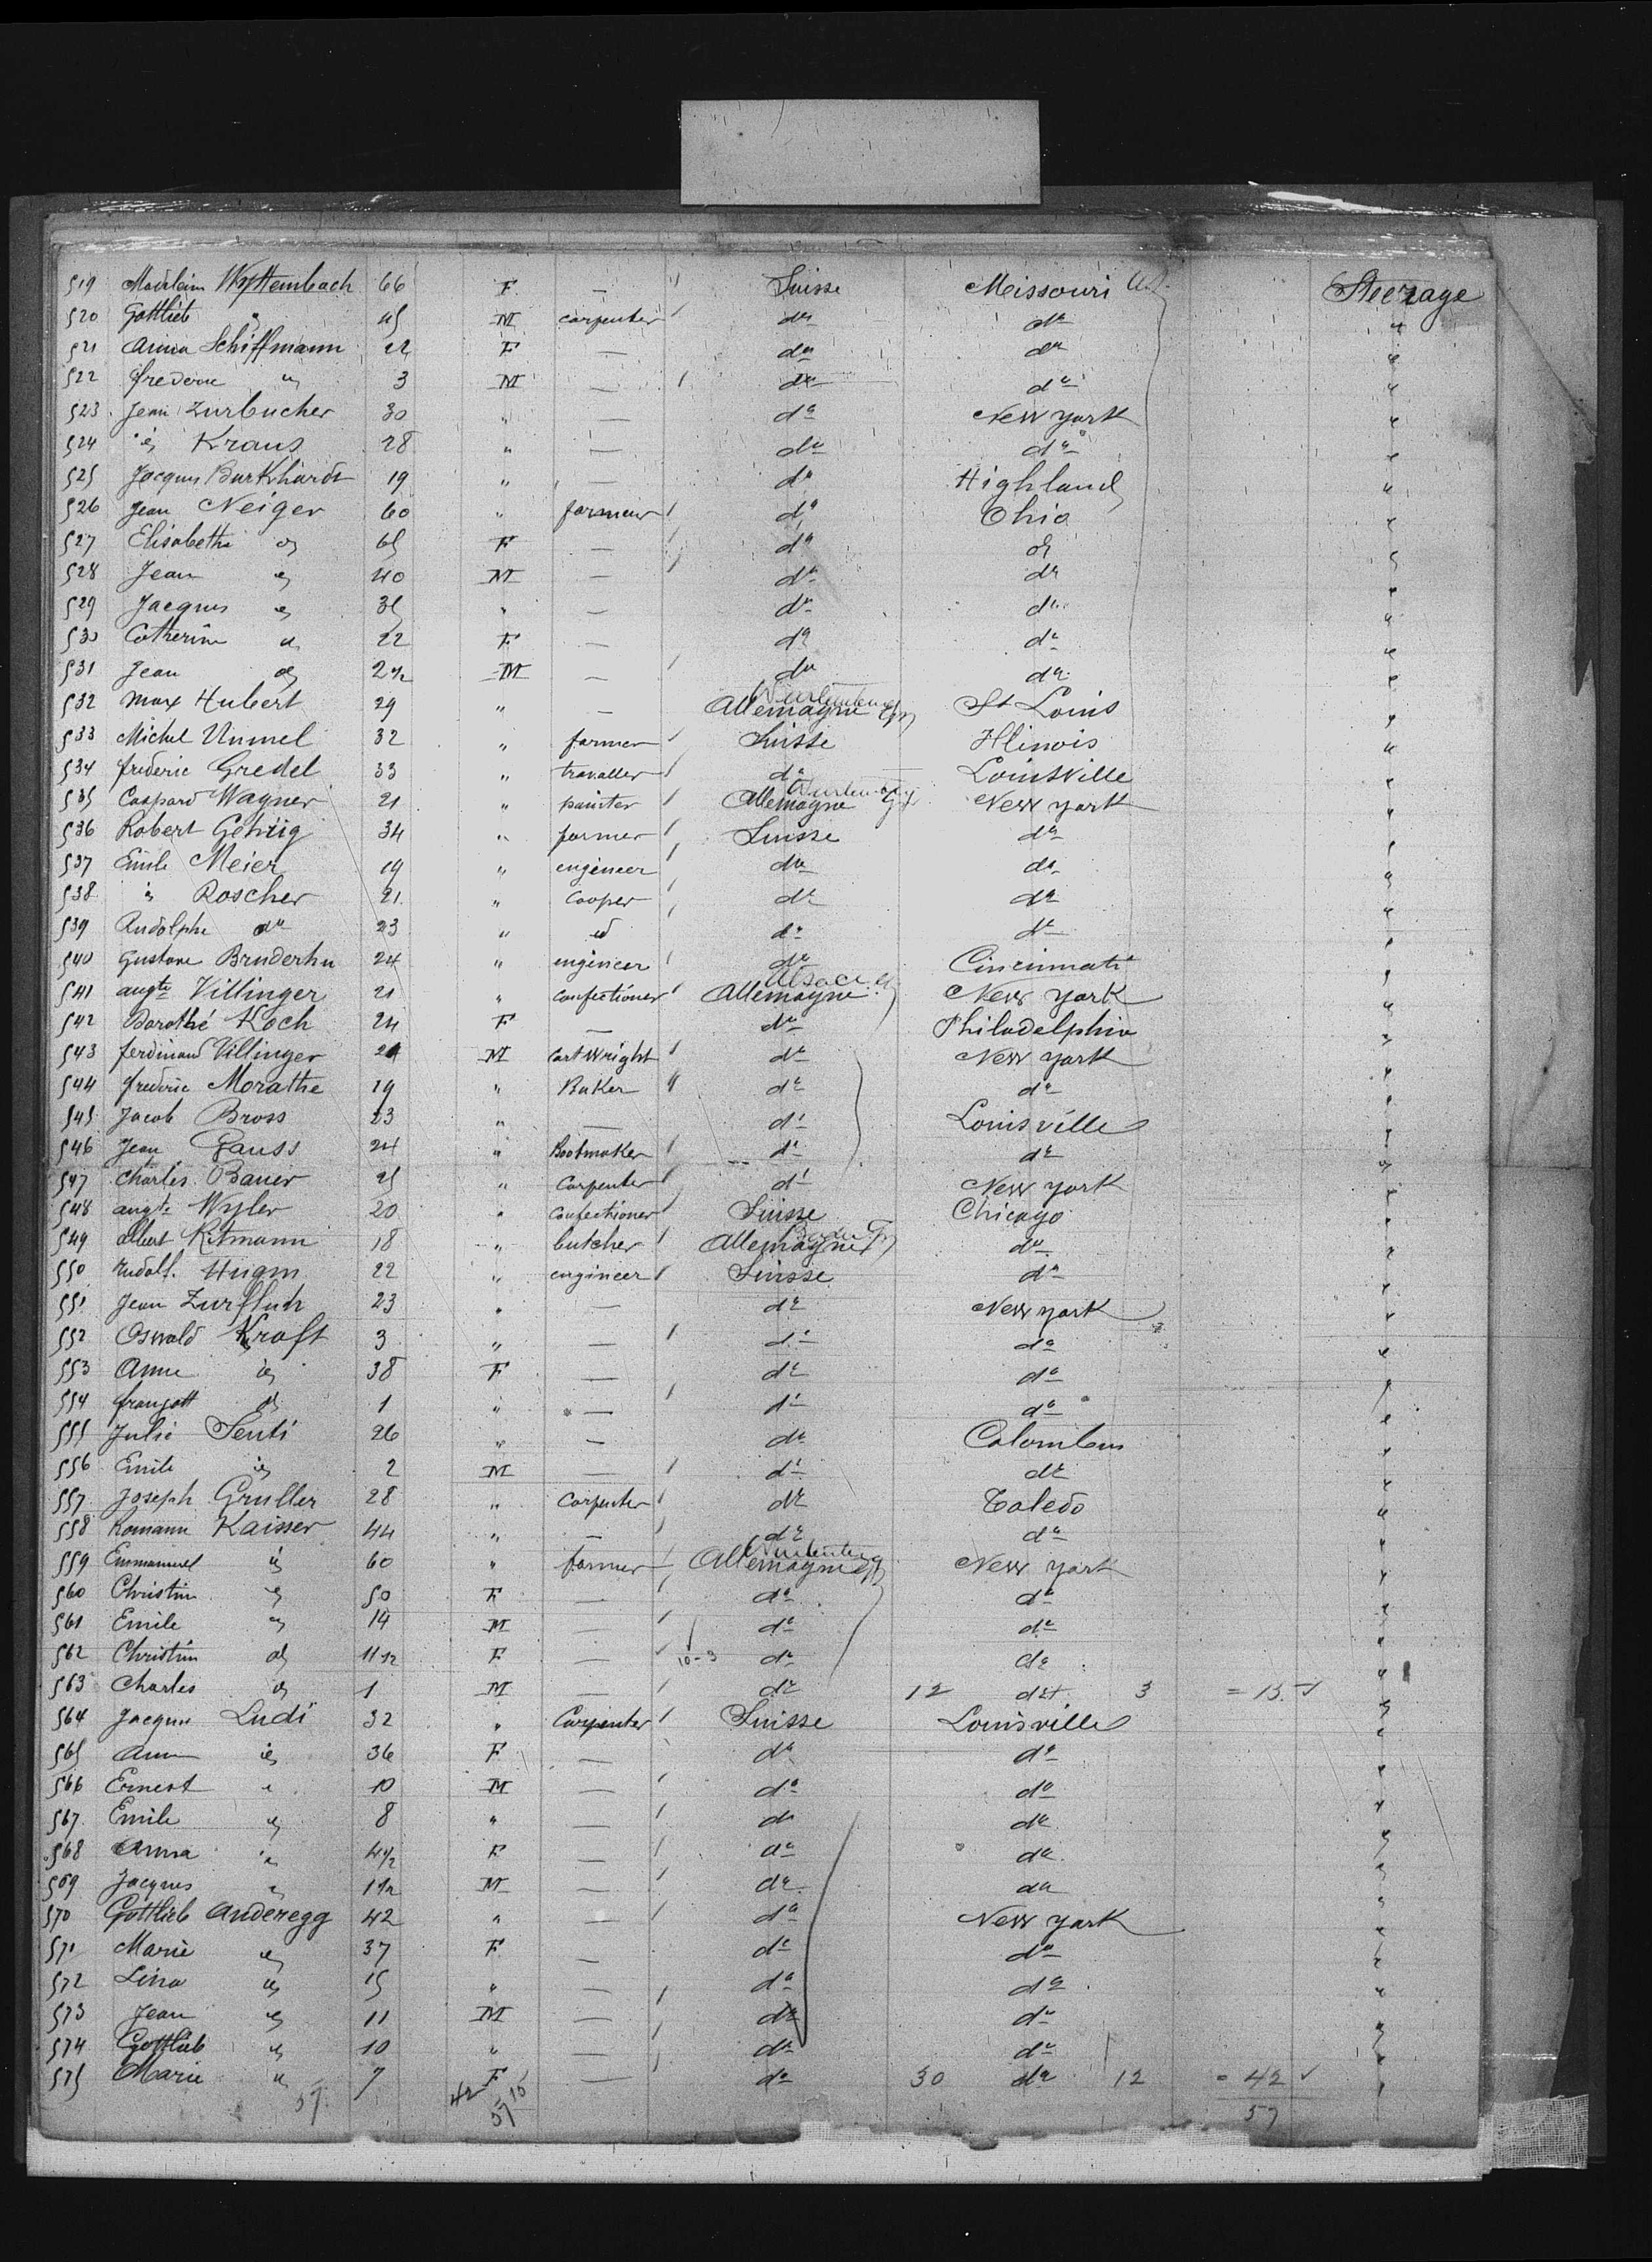 519 Madeleine Wyttembach 66 F — " Suisse Missouri Steerage
520 Gottlieb " 45 M carpenter do do "
521 Anna Schiffmann 22 F — do do "
522 frederic " 3 M — do do "
523 Jean Zurbucher 30 " — do New york "
524 id Kraus 28 " — do do "
525 Jacques Burkhardt 19 " — do Highland "
526 Jean Neiger 60 " farmer do Ohio "
527 Elisabeth id 65 F — do do "
528 Jean id 40 M — do do "
529 Jacques id 35 " — do do "
530 Catherine id 22 F — do do "
531 Jean id 2 M — do do "
532 Max Hubert 29 " — Allemagne St Louis "
533 Michel Unmel 32 " farmer Suisse Illinois "
534 frederic Gredel 33 " travaller do Louisville "
535 Caspard Wagner 21 " painter Allemagne New york "
536 Robert Gehrig 34 " farmer Suisse do "
537 Emile Meier 19 " engineer do do "
538 id Roscher 21 " cooper do do "
539 Rudolphe do 23 " id do do "
540 Gustave 24 " engineer do Cincinnati "
541 augte Villinger 21 " confectioner Allemagne Alsace New york "
542 Dorothé Koch 24 F — do Philadelphia "
543 ferdinand Villinger M Cartwright do New york "
544 frederic Morathe 19 " Baker do do "
545 Jacob Bross 23 " — do Louisville "
546 Jean Gauss 24 " Bootmaker do do "
547 Charles Bauer 25 " Carpenter do New york "
548 augte Wyler 20 " Confectioner Suisse Chicago "
549 albert Ritmann 18 " butcher Allemagne do "
550 Rudolf. Hugin 22 " engineer Suisse do "
551 Jean Zurfluh 23 " — do New york "
552 Oswald Kraft 3 " — do do "
553 Anne id 38 F — do do "
554 id 1 " — do do "
555 Julie Senti 26 " — do Colombus "
556 Emile id 2 M — do do "
557 Joseph Gruller 28 " Carpenter do Toledo "
558 Romann Kaisser 44 " — do do "
559 Emmanuel id 60 " farmer Allemagne New york "
560 Christine id 50 F — do do "
561 Emile id 14 M — do do "
562 Christine id F — 10-3 do do "
563 Charles id 1 M — do 12 do 3 = 15 "
564 Jacques Ludi 32 " Carpenter Suisse Louisville "
565 Ann id 36 F — do do "
566 Ernest " 10 M — do do "
567 Emile id 8 " — do do "
568 Anna id F — do do "
569 Jacques " M — do do "
570 Gottlieb Anderegg 42 " — do New york "
571 Marie id 37 F — do do "
572 Lina id 15 " — do do "
573 Jean id 11 M — do do "
574 Gottlieb id 10 " — do do "
575 Marie id 7 F — do 30 do 12 = 42 "
57 42 15 57
57